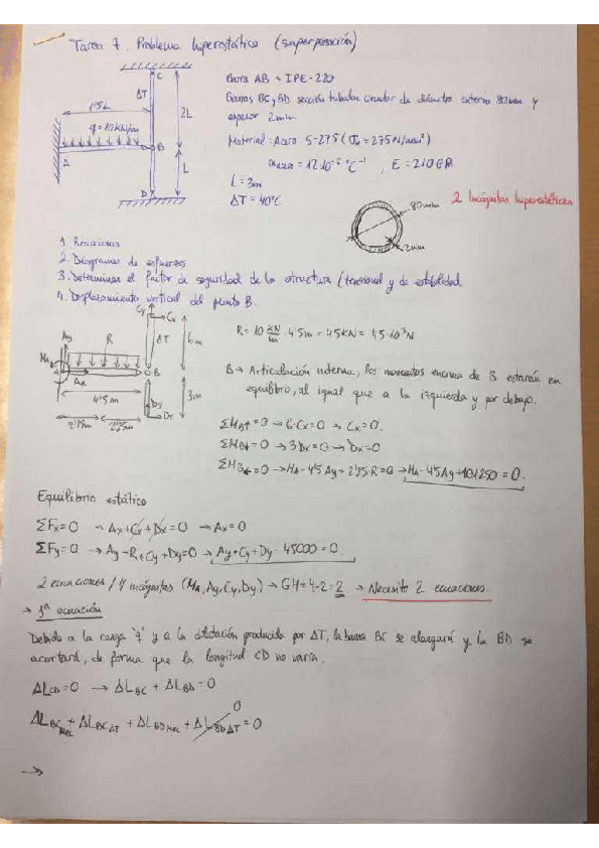 Tarea 7. Problema hiperestático (superposición)
C
ΔT
2L
1'5L
q=10kN/m
A
B
L
D
Barra AB → IPE-220
Barras BC y BD sección tubular circular de diámetro externo 80mm y
espesor 2mm.
Material: Acero S-275 (σe = 275N/mm²)
αacero = 12·10⁻⁶ °C⁻¹, E = 210GPa
L = 3m
ΔT = 40°C
80mm
2mm
2 Incógnitas hiperestáticas
1. Reacciones
2. Diagramas de esfuerzos
3. Determinar el factor de seguridad de la estructura (tensional y de estabilidad
4. Desplazamiento vertical del punto B.
Cy
Cx
ΔT
6m
Ay
R
MA
Ax
B
4'5m
3m
Dy
Dx
2'25m
2'25m
R = 10 kN/m · 4'5m = 45kN = 45·10³N
B → Articulación interna, los momentos encima de B estarán en
equilibrio, al igual que a la izquierda y por debajo.
ΣMB↑ = 0 → 6·Cx = 0 → Cx = 0.
ΣMB↓ = 0 → 3Dx = 0 → Dx = 0
ΣMB← = 0 → MA - 4'5Ay + 2'25R = 0 → MA - 4'5Ay + 101250 = 0.
Equilibrio estático
ΣFx = 0 → Ax + Cx + Dx = 0 → Ax = 0.
ΣFy = 0 → Ay - R + Cy + Dy = 0 → Ay + Cy + Dy - 45000 = 0.
2 ecuaciones / 4 incógnitas (MA, Ay, Cy, Dy) → GH = 4-2 = 2 → Necesito 2 ecuaciones.
→ 1ª ecuación
Debido a la carga 'q' y a la dilatación producida por ΔT, la barra BC se alargará y la BD se
acortará, de forma que la longitud CD no varía.
ΔLCD = 0 → ΔLBC + ΔLBD = 0
0
ΔLBC MEC + ΔLBC ΔT + ΔLBD MEC + ΔLBD ΔT = 0
→